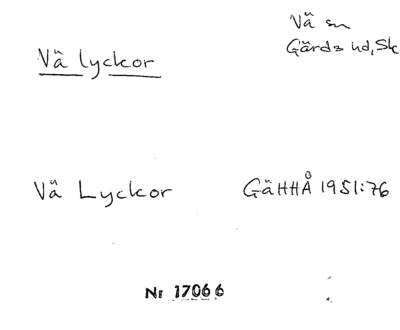 Vä sn
Gärds hd, Sk
Vä lyckor
Vä Lyckor GäHHÅ 1951:76
Nr 17066